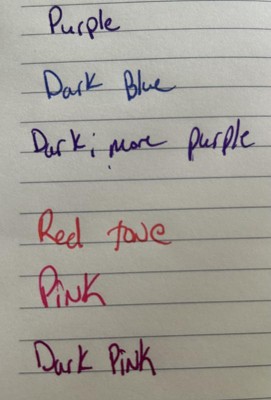 Purple
Dark Blue
Dark; more purple
Red tone
Pink
Dark Pink